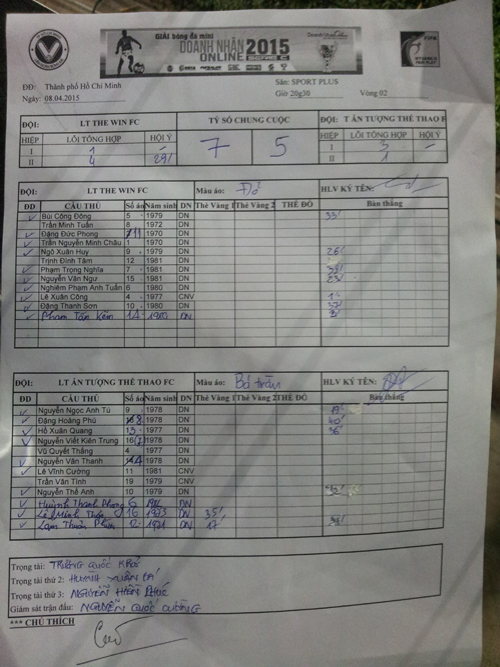 GIẢI bóng đá mini
DOANH NHÂN 2015
ONLINE
ĐĐ: Thành phố Hồ Chí Minh Sân: SPORT PLUS
Ngày: 08.04.2015 Giờ 20g30 Vòng 02
ĐỘI: LT THE WIN FC TỶ SỐ CHUNG CUỘC ĐỘI: T ẤN TƯỢNG THỂ THAO
HIỆP LỖI TỔNG HỢP HỘI Ý 7 5 HIỆP LỖI TỔNG HỢP HỘI Ý
I 1 I 3
II 4 29' II 1
ĐỘI: LT THE WIN FC Màu áo: Đỏ HLV KÝ TÊN:
ĐD CẦU THỦ Số áo Năm sinh DN Thẻ Vàng 1 Thẻ Vàng 2 THẺ ĐỎ Bàn thắng
Bùi Công Đông 5 1979 DN 33'
Trần Minh Tuấn 8 1972 DN
Đặng Đức Phong 11 1970 DN
Trần Nguyễn Minh Châu 1 1970 DN
Ngô Xuân Huy 9 1979 DN
Trịnh Đình Tâm 12 1981 DN
Phạm Trọng Nghĩa 7 1981 DN
Nguyễn Văn Ngư 15 1981 DN
Nghiêm Phạm Anh Tuấn 6 1980 DN
Lê Xuân Công 4 1977 CNV
Đặng Thanh Sơn 10 1980 DN
Phạm Tấn 14 1980 DN
ĐỘI: LT ẤN TƯỢNG THỂ THAO FC Màu áo: Bá trần HLV KÝ TÊN:
ĐD CẦU THỦ Số áo Năm sinh DN Thẻ Vàng 1 Thẻ Vàng 2 THẺ ĐỎ Bàn thắng
Nguyễn Ngọc Anh Tú 9 1978 DN
Đặng Hoàng Phú 8 1978 DN 40'
Hồ Xuân Quang 1977 DN 36'
Nguyễn Viết Kiên Trung 1978 DN
Vũ Quyết Thắng 4 1977 DN
Nguyễn Văn Thanh 1978 DN
Lê Vĩnh Cường 11 1981 CNV
Trần Văn Tĩnh 19 1979 CNV
Nguyễn Thế Anh 10 1979 DN
Huỳnh Thanh Phong 6 DN
Lê Minh 16 1983 DN 35'
Lam Thuận 12 1971 DN 17'
Trọng tài: TRƯƠNG QUỐC
Trọng tài thứ 2: HUỲNH XUÂN
Trọng tài thứ 3: NGUYỄN HIỀN PHÚC
Giám sát trận đấu: NGUYỄN QUỐC CƯỜNG
*** CHÚ THÍCH